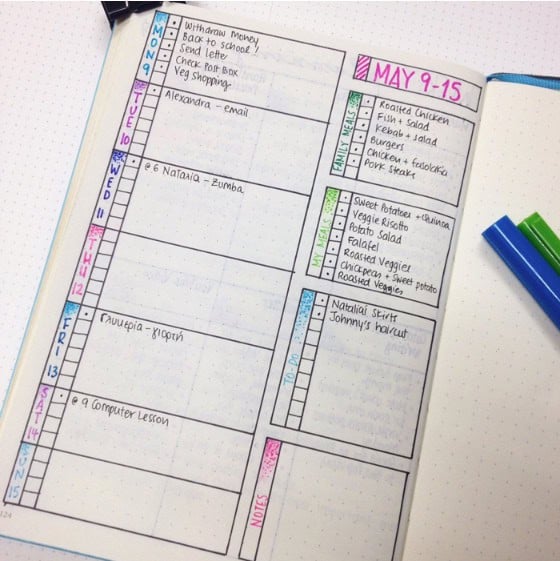 MON 9
Withdraw Money
Back to school!
Send letter
Check Post Box
Veg shopping
TUE 10
Alexandra - email
WED 11
@ 6 Natalia - Zumba
THU 12
FRI 13
Γλυκερία - γιορτή
SAT 14
@ 9 Computer Lesson
SUN 15
124
MAY 9-15
FAMILY MEALS
Roasted Chicken
Fish + Salad
Kebab + salad
Burgers
Chicken + fasolakia
Pork Steaks
MY MEALS
Sweet Potatoes + Quinoa
Veggie Risotto
Potato Salad
Falafel
Roasted Veggies
Chickpeas + Sweet potato
Roasted Veggies
TO-DO
Natalia: Skirts
Johnny's haircut
NOTES